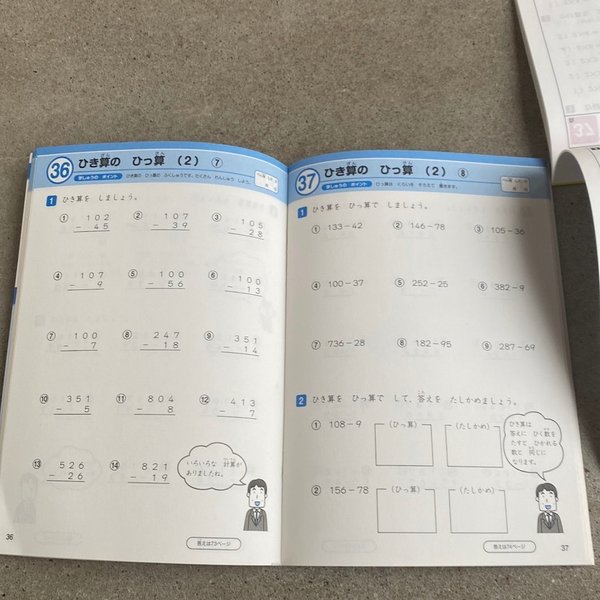 36 ひき算の ひっ算 (2) ⑦
学しゅうの ポイント
ひき算の ひっ算の ふくしゅうです。たくさん れんしゅう しよう。
1 ひき算を しましょう。
① 102 ② 107 ③ 105
− 45 − 39 − 28
④ 107 ⑤ 100 ⑥ 100
− 9 − 56 − 13
⑦ 100 ⑧ 247 ⑨ 351
− 7 − 18 − 14
⑩ 351 ⑪ 804 ⑫ 413
− 5 − 8 − 7
⑬ 526 ⑭ 821
− 26 − 19
いろいろな 計算が
ありましたね。
36
答えは73ページ
37 ひき算の ひっ算 (2) ⑧
学しゅうの ポイント
ひっ算は くらいを そろえて 書きます。
1 ひき算を ひっ算で しましょう。
① 133−42 ② 146−78 ③ 105−36
④ 100−37 ⑤ 252−25 ⑥ 382−9
⑦ 736−28 ⑧ 182−95 ⑨ 287−69
2 ひき算を ひっ算で して、答えを たしかめましょう。
① 108−9 (ひっ算) (たしかめ)
ひき算は
答えに ひく数を
たすと、ひかれる
数と 同じに
なります。
② 156−78 (ひっ算) (たしかめ)
答えは74ページ
37